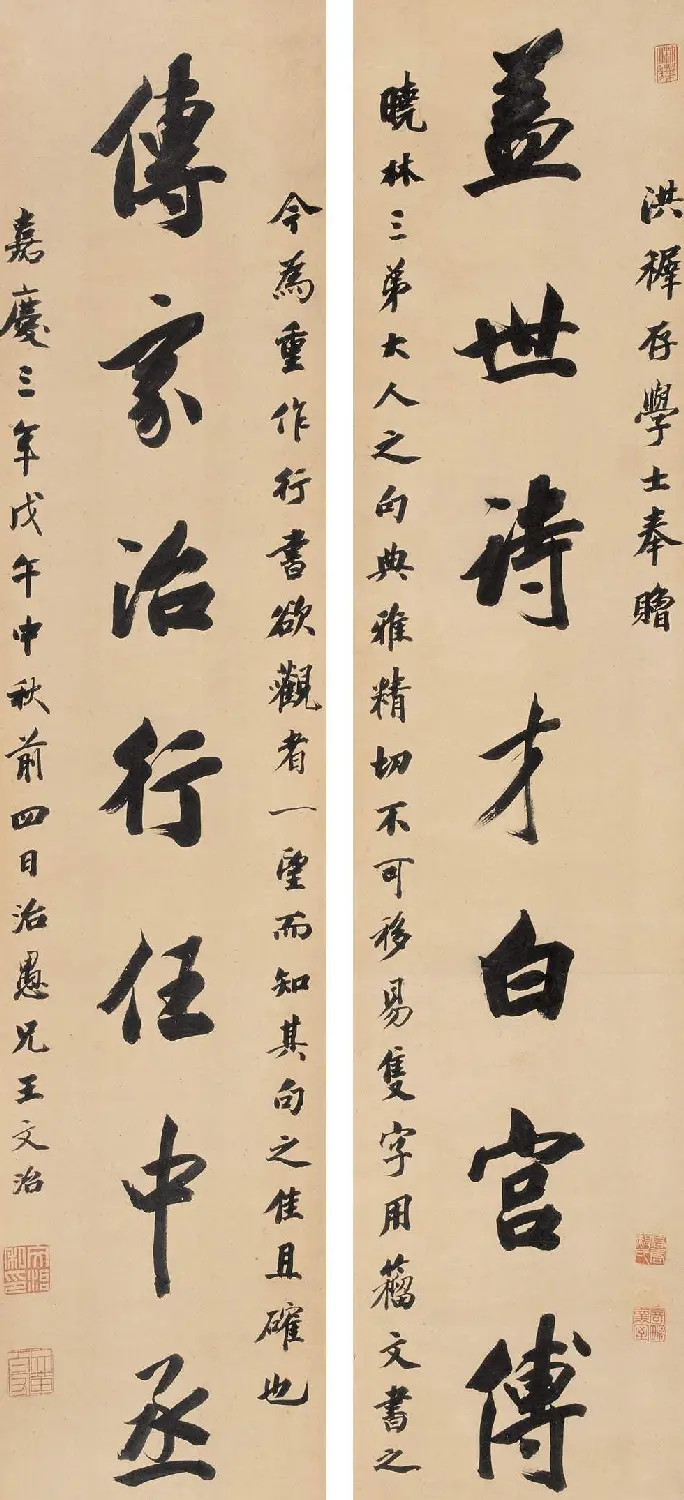 洪穉存學士奉贈
蓋世詩才白宮傅
曉林三弟大人之句典雅精切不可移易隻字用籀文書之
今為重作行書欲觀者一望而知其句之佳且確也
傳家治行任中丞
嘉慶三年戊午中秋前四日治愚兄王文治